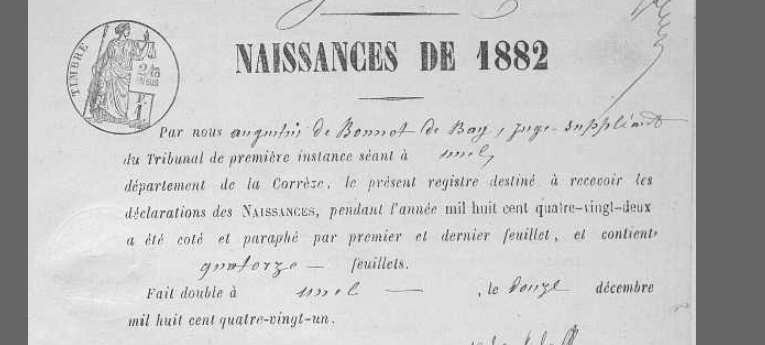 NAISSANCES DE 1882
TIMBRE
2/10
EN SUS
F.
1
Par nous augustin de Bonnot de Bay, juge-suppléant
du Tribunal de première instance séant à ussel,
département de la Corrèze, le présent registre destiné à recevoir les
déclarations des NAISSANCES, pendant l'année mil huit cent quatre-vingt-deux
a été coté et paraphé par premier et dernier feuillet, et contient
quatorze — feuillets.
Fait double à ussel — , le douze décembre
mil huit cent quatre-vingt-un.